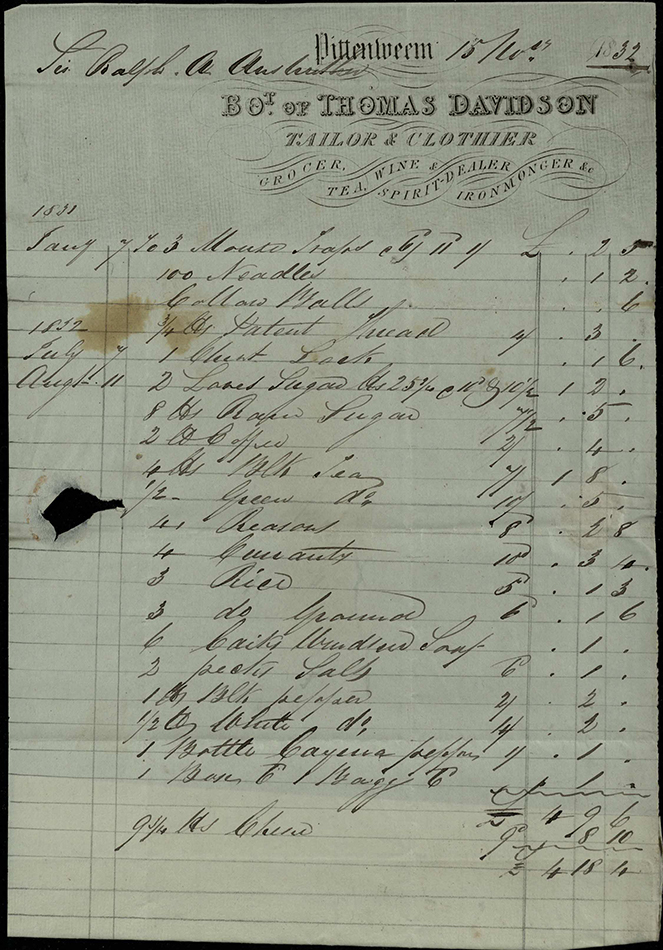 Pittenweem 15 Novr 1832
Sir Ralph A Anstruther
BOT. OF THOMAS DAVIDSON
TAILOR & CLOTHIER
GROCER, TEA, WINE & SPIRIT-DEALER IRONMONGER &c
1831
Jany 7 To 3 Mouse Traps £ . 2 3
100 Needles . 1 2.
Cotton Balls . . 6
1832 3/4 lb Patent Thread 4 . 3 .
July 7 1 Chest Lock . 1 6.
Augt. 11 2 Loves Sugar lbs 25 3/4 10d & 10 1/2 1 2 .
8 lbs Raw Sugar 7 1/2 . 5 .
2 lb Coffee 2/ . 4 .
4 lbs Blk Tea 7/ 1 8 .
1/2 - Green do 10/ . 5 .
4 Reasons 8d . 2 8
4 Currants 10d . 3 4.
3 Rice 5d . 1 3
3 do Ground 6 . 1 6
6 Caiks Windsor Soap . 1 .
2 pects Salts 6 . 1 .
1 lb Blk pepper 2/ . 2 .
1/2 lb White do 4/ . 2 .
1 Bottle Cayena pepper 1/ . 1 .
1 Box 6 1 Bagg 6 . 1 .
£ 4 9 6
9 3/4 lbs Cheese 9 8 10
£ 4 18 4